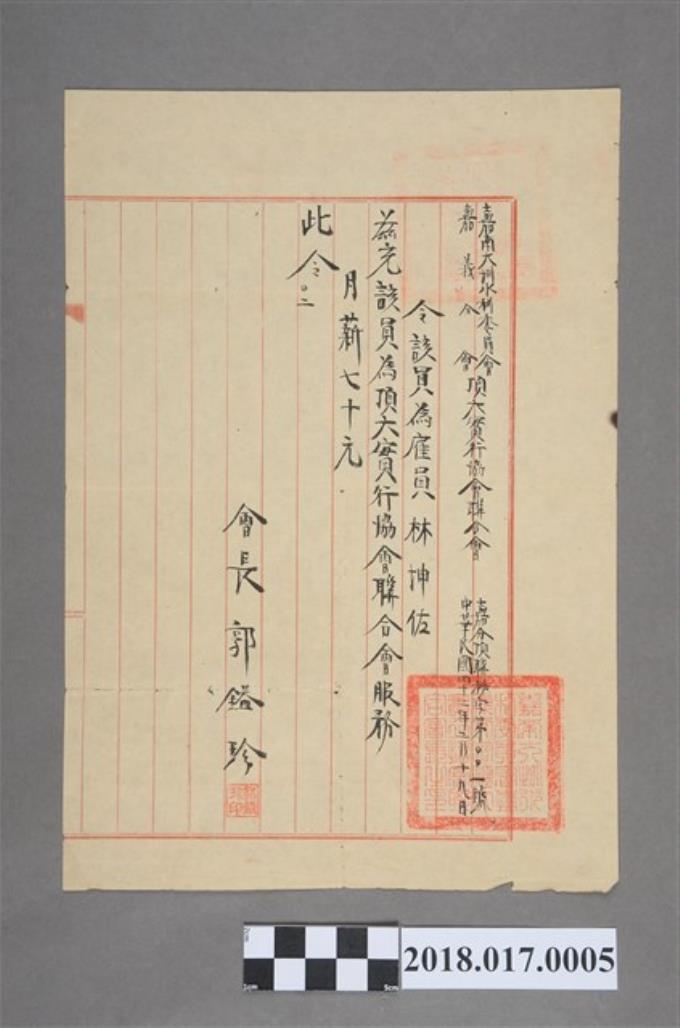 嘉南大圳水利委員會
嘉義分會
頂大實行協會聯合會
嘉分頂聯秘字第００一號
中華民國四十二年二月十九日
令該員為雇員 林坤佐
茲充該員為頂大實行協會聯合會服務
月薪七十元
此令
會長 郭鎰珍
2018.017.0005
1cm
5cm